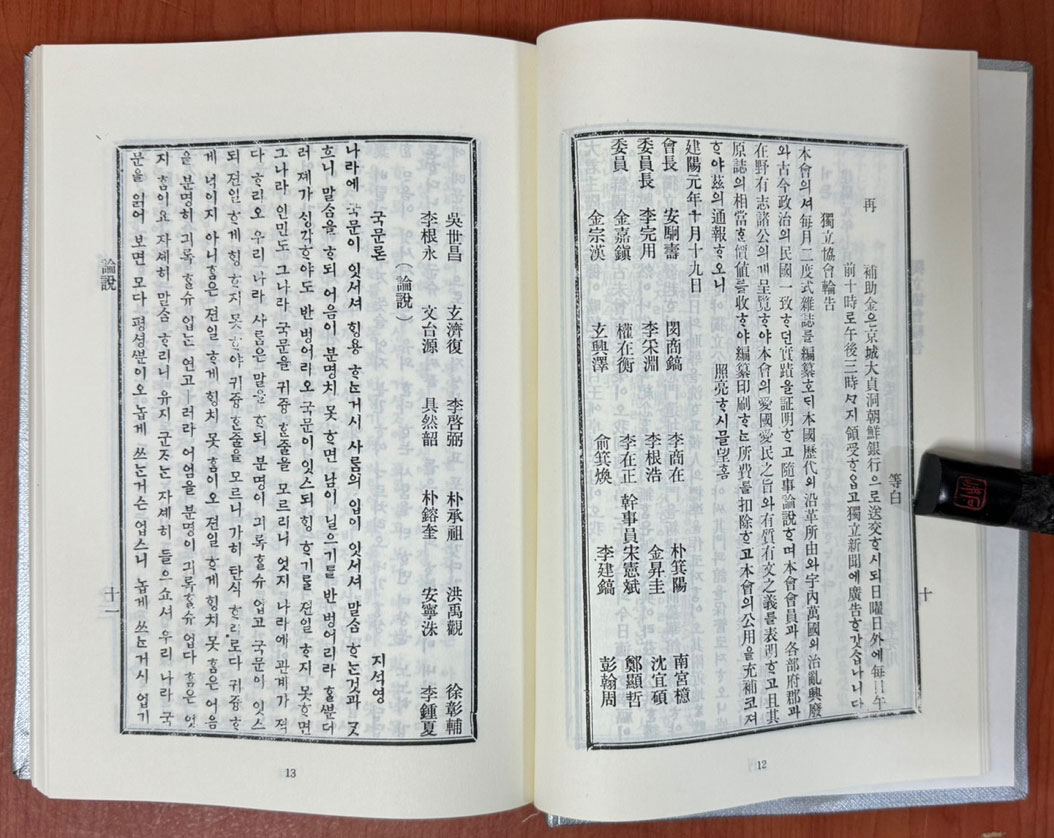 等白
再 補助金은京城大貞洞朝鮮銀行으로送交ᄒᆞ시되日曜日外에每日午
前十時로午後三時ᄭᆞ지領受ᄒᆞ압고獨立新聞에廣告ᄒᆞ갓삽나니다
獨立協會輪告
本會의셔每月二度式雜誌를編纂ᄒᆞ되本國歷代의沿革所由와宇內萬國의治亂興廢
와古今政治의民國一致ᄒᆞ던實蹟을証明ᄒᆞ고隨事論說ᄒᆞ며本會會員과各部府郡과
在野有志諸公의게呈覽ᄒᆞ야本會의愛國愛民之旨와有質有文之義를表明ᄒᆞ고且其
原誌의相當ᄒᆞᆫ價値를收ᄒᆞ야編纂印刷ᄒᆞᄂᆞᆫ所費를扣除ᄒᆞ고本會의公用을充補코져
ᄒᆞ야玆의通報ᄒᆞ오니 照亮ᄒᆞ시믈望홈
建陽元年十月十九日
會長 安駉壽 閔商鎬 李商在 朴箕陽 南宮檍
委員長 李完用 李采淵 李根浩 金昇圭 沈宜碩
委員 金嘉鎭 權在衡 李在正 幹事員宋憲斌 鄭顯哲
金宗漢 玄興澤 兪箕煥 李建鎬 彭翰周
十
12
吳世昌 玄濟復 李啓弼 朴承祖 洪禹觀 徐彰輔
李根永 文台源 具然韶 朴鎔奎 安寧洙 李鍾夏
(論說)
국문론 지석영
나라에 국문이 잇셔셔 ᄒᆡᆼ용 ᄒᆞᄂᆞᆫ거시 사ᄅᆞᆷ의 입이 잇셔셔 말ᄉᆞᆷ ᄒᆞᄂᆞᆫ것과 ᄀᆞᆺ
흐니 말ᄉᆞᆷ을 ᄒᆞ되 어음이 분명치 못 ᄒᆞ면 남이 닐으기를 반벙어리라 ᄒᆞᆯ뿐더
러 졔가 ᄉᆡᆼ각ᄒᆞ야도 반벙어리오 국문이 잇스되 ᄒᆡᆼ ᄒᆞ기를 젼일 ᄒᆞ지 못ᄒᆞ면
그나라 인민도 그나라 국문을 귀즁 ᄒᆞᆫ줄을 모르리니 엇지 나라에 관계가 젹
다 ᄒᆞ리오 우리 나라 사ᄅᆞᆷ은 말을 ᄒᆞ되 분명이 긔록ᄒᆞᆯ슈 업고 국문이 잇스
되 젼일 ᄒᆞ게 ᄒᆡᆼ ᄒᆞ지 못 ᄒᆞ야 귀즁 ᄒᆞᆫ줄을 모르니 가히 탄식 ᄒᆞ리로다 귀즁 ᄒᆞ
게 넉이지 아니홈은 젼일 ᄒᆞ게 ᄒᆡᆼ치 못 홈이오 젼일 ᄒᆞ게 ᄒᆡᆼ치 못 홈은 어음
을 분명히 긔록 ᄒᆞᆯ슈 업는 연고ㅣ러라 어음을 분명이 긔록ᄒᆞᆯ슈 업다 홈은 엇
지 홈이요 자셰히 말ᄉᆞᆷ ᄒᆞ리니 유지 군ᄌᆞ는 자셰히 들으쇼셔 우리 나라 국
문을 읽어 보면 모다 평셩뿐이오 놉게 쓰ᄂᆞᆫ거슨 업스니 놉게 쓰ᄂᆞᆫ거시 업기
論說
十一
13